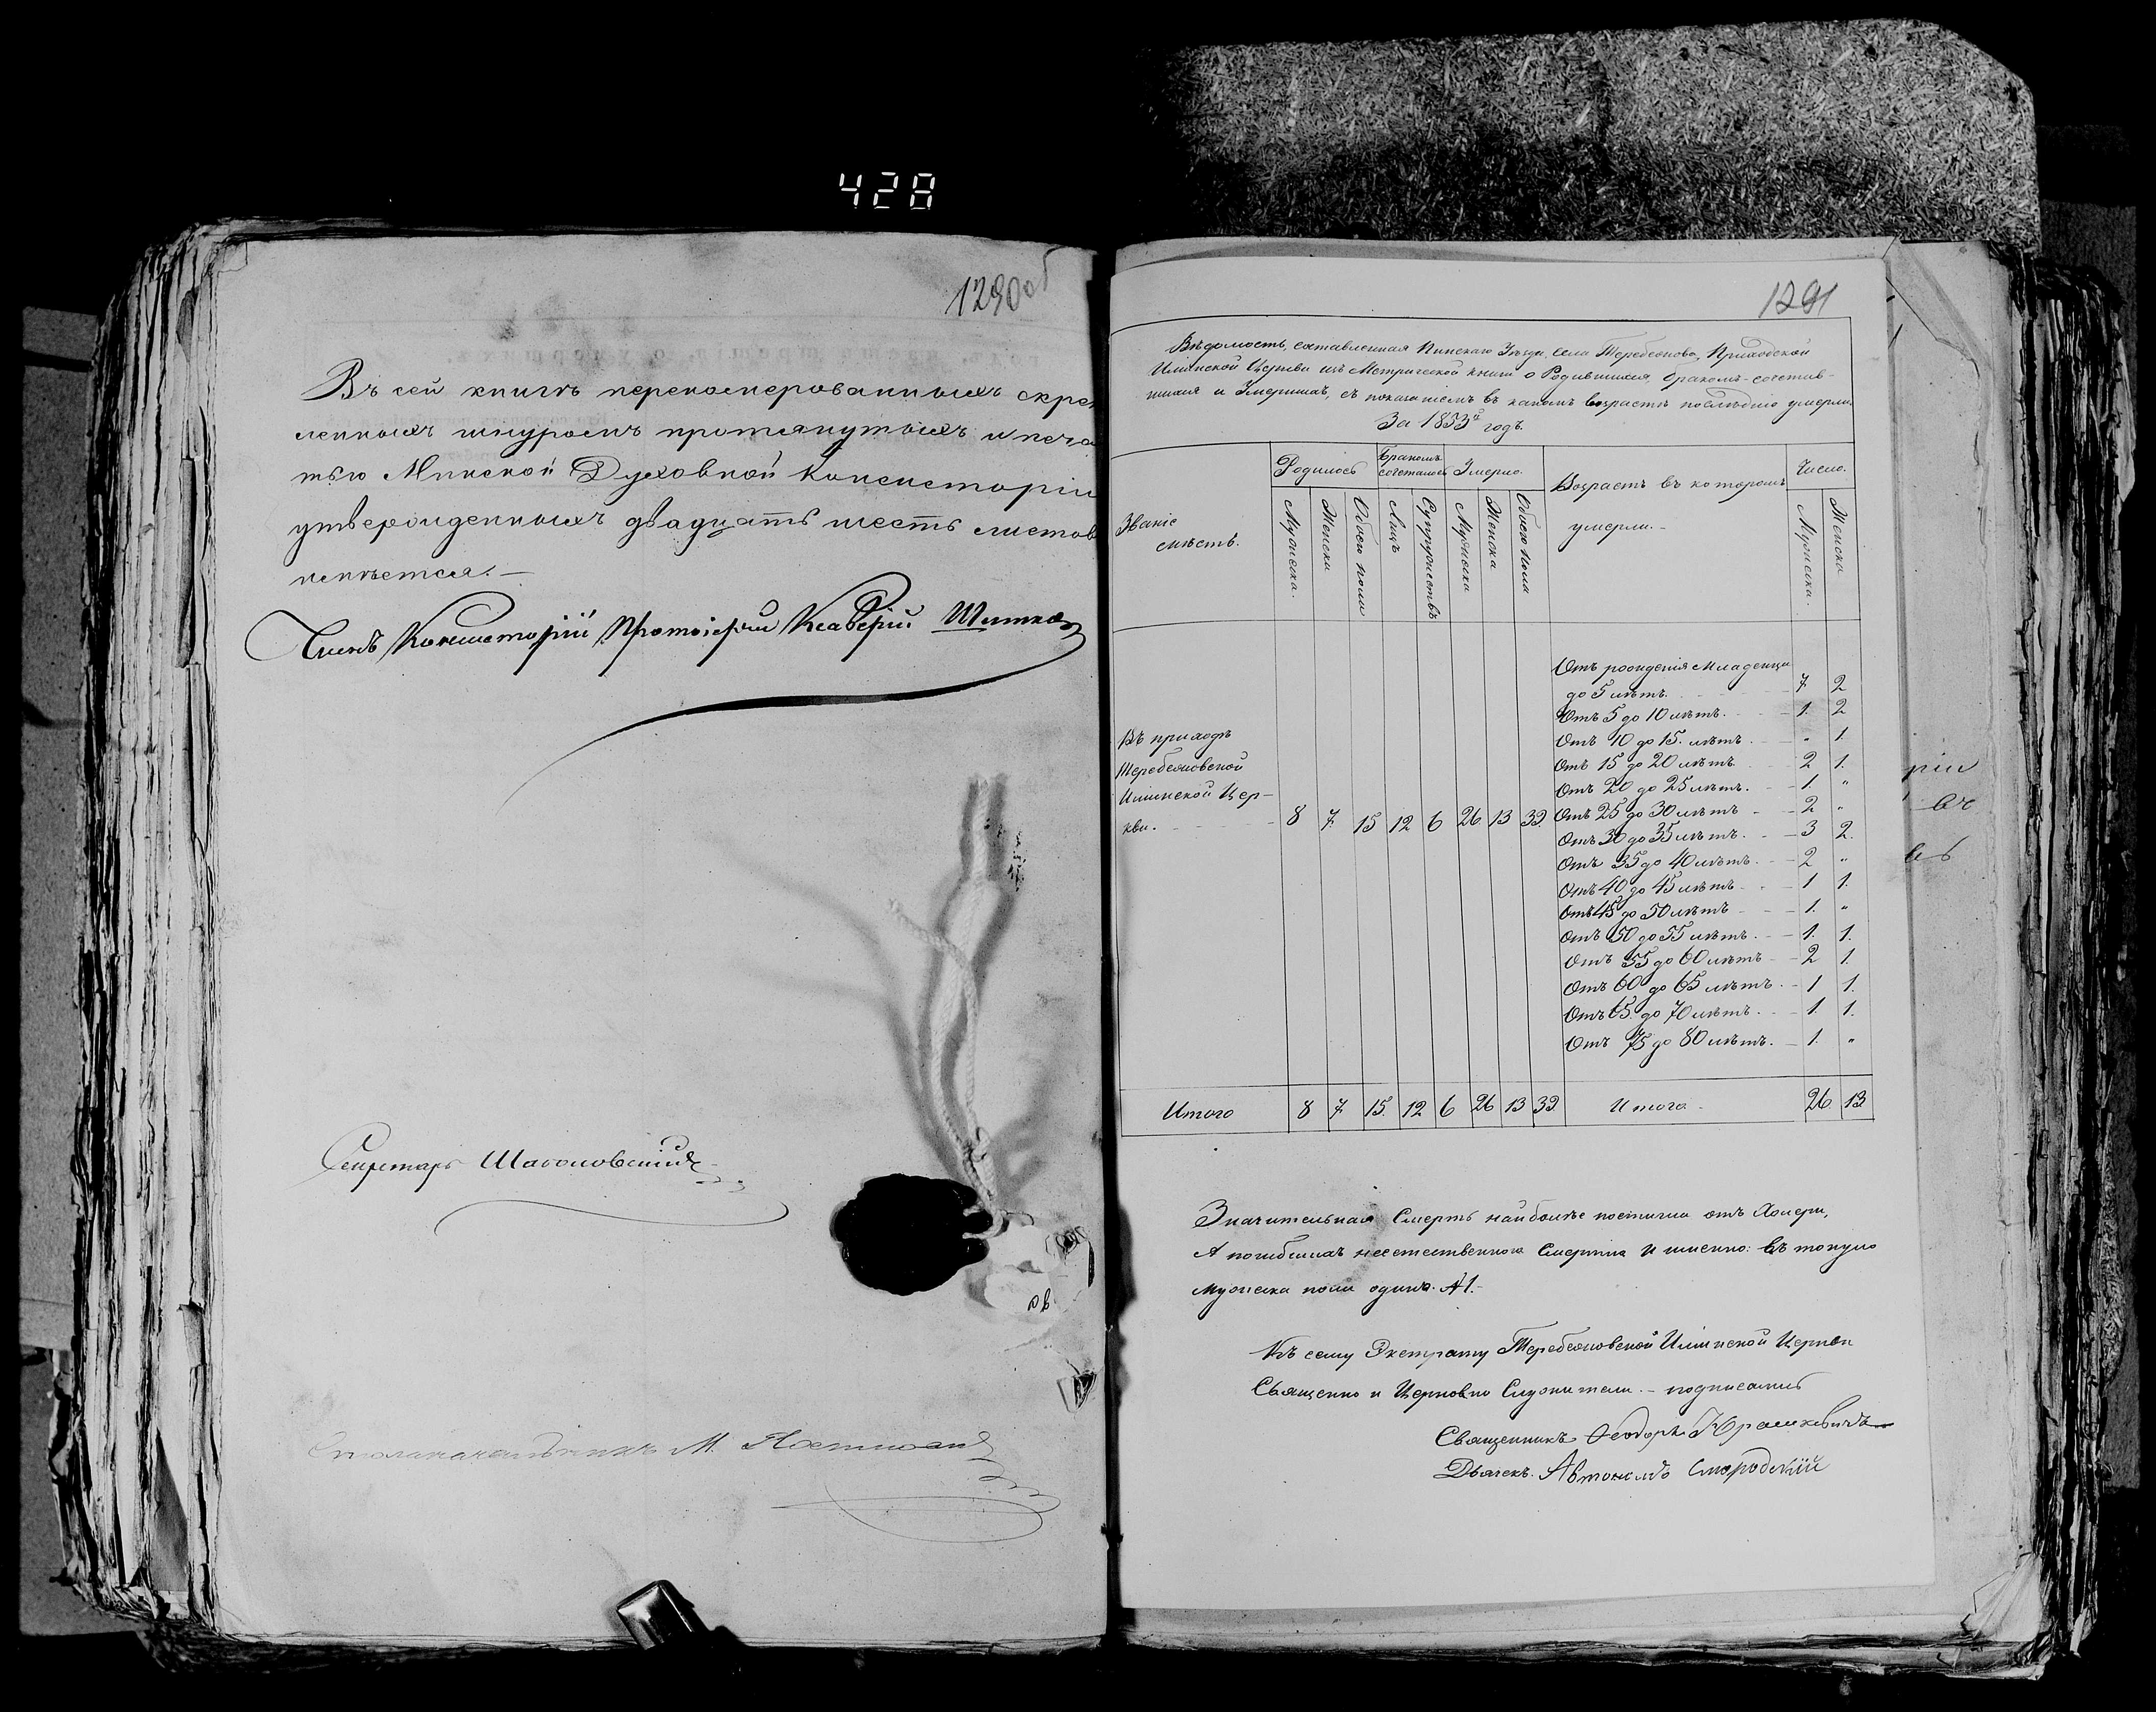 428
1290об
Въ сей книгѣ перенумерованныхъ скре
пленныхъ шнуромъ протянутыхъ и печа
тью Минской Духовной Консисторіи
утвержденныхъ двадцать шесть листовъ
имѣется.—
Членъ Консисторіи Протоіерей Ксаверій
Секретарь
Столоначальникъ М.
1291
Вѣдомость, составленная Пинскаго Уѣзда, села Теребежова, Приходской
Илiинской Церкви изъ Метрической книги о Родившихся, бракомъ-сочетав-
шихся и Умершихъ, съ показаніемъ въ какомъ возрастѣ послѣдніе умерли
За 1853й годъ.
Званіе мѣстъ.
Родилось
Бракомъ сочеталось
Умерло.
Возрастъ въ которомъ умерли.-
Число.
Мужеска.
Женска
Обоего пола
Лицъ
Супружествъ
Мужеска
Женска
Обоего пола
Мужеска.
Женска
Отъ рожденія Младенца
до 5 лѣтъ. 7. 2
Отъ 5 до 10 лѣтъ. 1. 2
Отъ 10 до 15. лѣтъ. " 1.
Отъ 15 до 20 лѣтъ. 2 1.
Отъ 20 до 25 лѣтъ. 1. "
Отъ 25 до 30 лѣтъ 2 "
Отъ 30 до 35 лѣтъ. 3 2.
Отъ 35 до 40 лѣтъ. 2 "
Отъ 40 до 45 лѣтъ 1 1.
Отъ 45 до 50 лѣтъ 1. "
Отъ 50 до 55 лѣтъ. 1. 1.
Отъ 55 до 60 лѣтъ 2 1.
Отъ 60 до 65 лѣтъ. 1 1.
Отъ 65. до 70 лѣтъ. 1. 1.
Отъ 75 до 80 лѣтъ. 1. "
Въ приходѣ
Теребежовской
Илiинской Цер-
кви. 8 7. 15 12 6 26. 13 39.
Итого 8 7. 15. 12 6 26 13 39 Итого 26. 13
Значительная Смерть наиболѣе постигла отъ Холеры,
А погибшихъ неестественною Смертію И именно: въ
мужеска пола одинъ. 1.-
Къ сему Экстракту Теребежовской Илiинской Церкви
Священно и Церковно Служители.- подписались
Священникъ Ѳеодоръ
Дьячекъ. Автономъ Смородскій